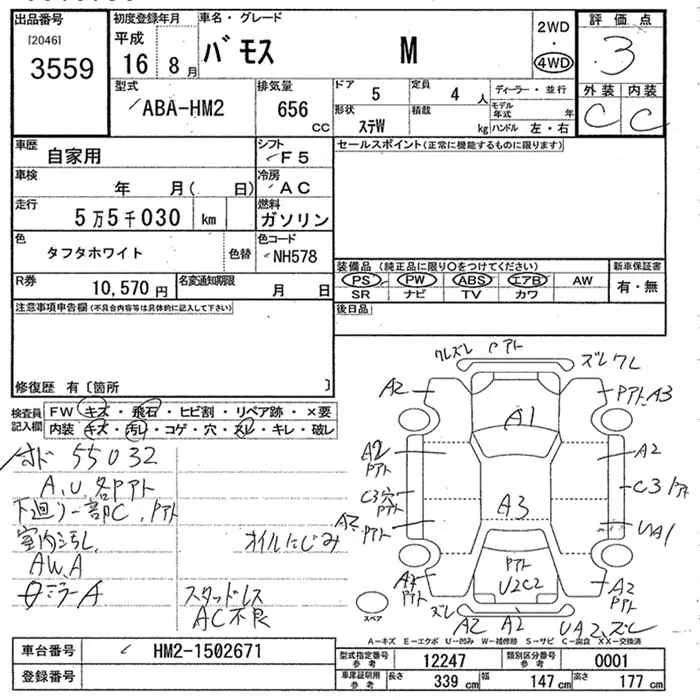 出品番号
[2046]
3559
初度登録年月
平成
16 8月
車名・グレード
バモス M
2WD
・
4WD
評価点
3
外装 内装
C C
型式
ABA-HM2
排気量
656
CC
ドア
5
定員
4人
ディーラー・並行
形状
ステW
積載
kg
モデル年式 年
ハンドル 左・右
車歴
自家用
シフト
F5
セールスポイント(正常に機能するものに限ります)
車検
年 月( 日)
冷房
AC
走行
5万5千030 km
燃料
ガソリン
色
タフタホワイト
色替
色コード
NH578
装備品(純正品に限り○をつけてください)
新車保証書
PS PW ABS エアB AW
有・無
SR ナビ TV カワ
R券
10,570円
名変通知期限
月 日
注意事項申告欄(不具合内容等は具体的に記入して下さい)
後日品
修復歴 有〔箇所 〕
検査員記入欄
FW キズ・飛石・ヒビ割・リペア跡・×要
内装 キズ・汚レ・コゲ・穴・スレ・キレ・破レ
55032
A,U,各Pアト
下廻リ一部C,Pアト
室内汚れ
AW,A
ミラーA
オイルにじみ
スタッドレス
AC不良
ワレズレ Pアト ズレワレ
A2 PアトA3
A1
A2 Pアト A2
C3穴Pアト C3Pアト
A2 Pアト A3 UA1
A2 Pアト Pアト U2C2 A2 Pアト
ズレ A2 A2 UA2,ズレ
スペア
A-キズ E-エクボ U-凹み W-補修跡 S-サビ C-腐食 XX-交換済
車台番号
HM2-1502671
登録番号
型式指定番号 参考
12247
類別区分番号 参考
0001
車庫証明用 参考
長さ 339 cm 幅 147 cm 高さ 177 cm